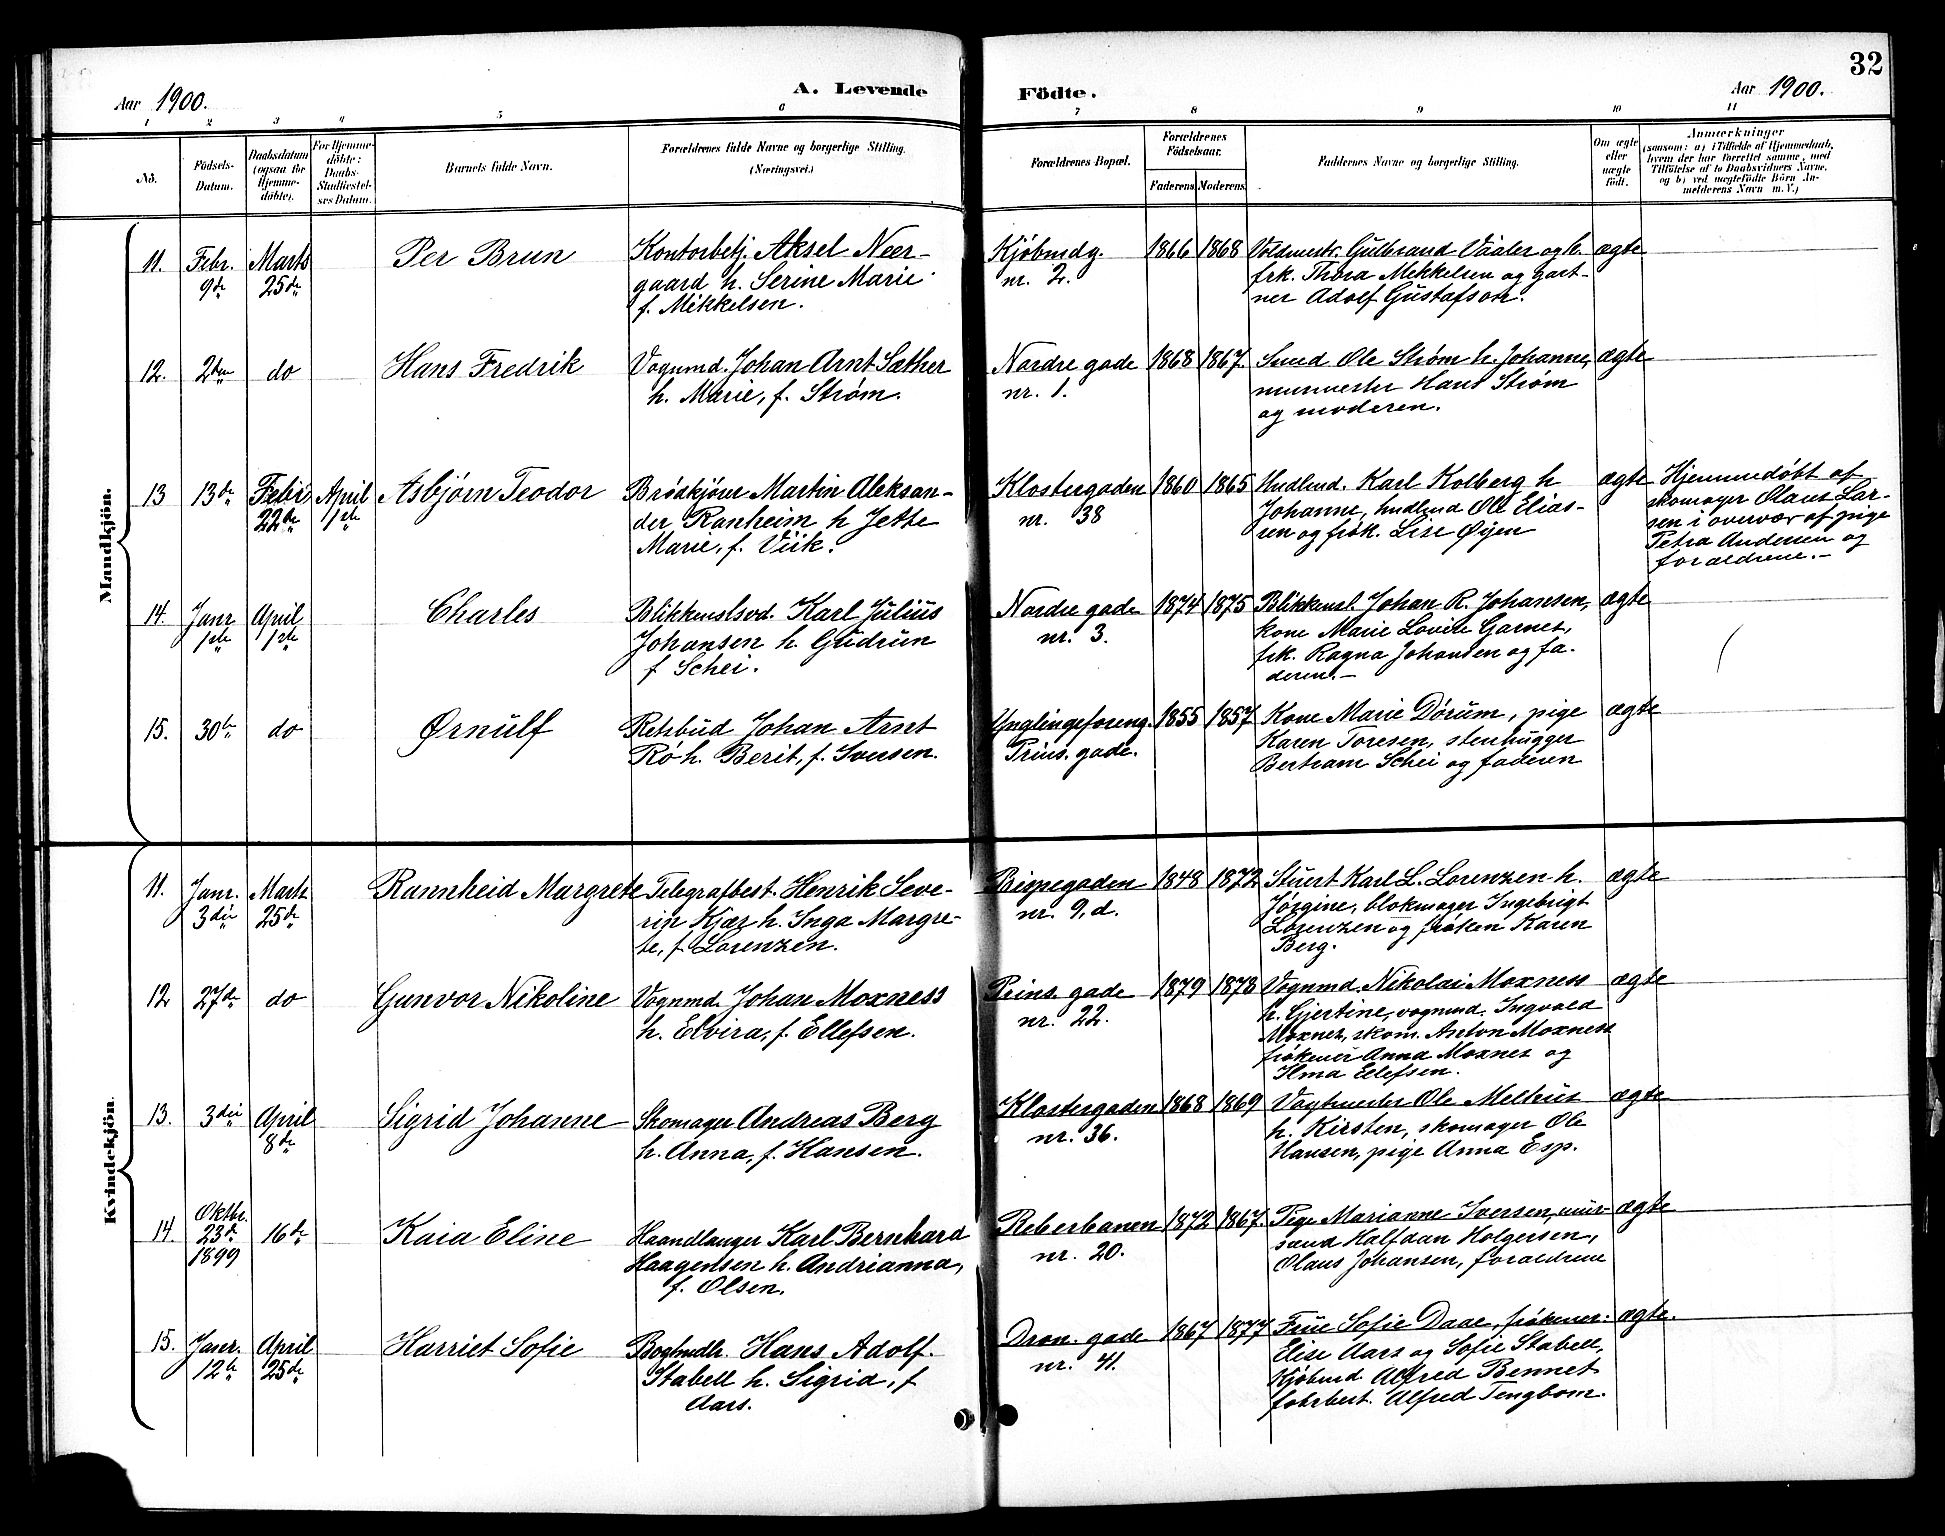 32
Aar 1900.
A. Levende
Födte.
Aar 1900.
1 2 3 4 5 6 7 8 9 10 11
No.
Födsels-
Datum.
Daabsdatum
(ogsaa for
Hjemme-
döbte).
For Hjemme-
döbte:
Daabs-
Stadfæstel-
ses Datum.
Barnets fulde Navn.
Forældrenes fulde Navne og borgerlige Stilling.
(Næringsvei.)
Forældrenes Bopæl.
Forældrenes
Födselsaar.
Faderens. Moderens.
Faddernes Navne og borgerlige Stilling.
Om ægte
eller
uægte
födt.
Anmærkninger
(saasom: a) i Tilfælde af Hjemmedaab,
hvem der har forrettet samme, med
Tilföielse af to Daabsvidners Navne,
og b) ved uægtefödte Börn An-
melderens Navn m. V.)
Mandkjön.
11. Febr. 9de
Marts 25de
Per Brun
Kontorbetj. Aksel Neer-
gaard h. Serine Marie
f. Mikkelsen.
Kjöbmdg.
nr. 2.
1866 1868
Gulbrand Vaaler og h.
frk. Thora Mekkelsen og gart-
ner Adolf Gustafson.
ægte
12. 2den do
Hans Fredrik
Vognmd. Johan Arnt Sæther
h. Marie, f. Strøm.
Nordre gade
nr. 1.
1868 1867.
Smed Ole Strøm h. Johanne,
murmester Hans Strøm
og moderen.
ægte
13 13de
Febr 22de
April 1ste
Asbjørn Teodor
Brødkjører Martin Aleksan-
der Ranheim h Jette
Marie, f. Viik.
Klostergaden
nr. 38
1860 1865
Hndlmd. Karl Kolberg h
Johanne, hndlmd Ole Elias-
sen og frøk. Lise Øyen
ægte
Hjemmedøbt af
skomager Olaus Lar-
sen i overvær af pige
Petra Andersen og
foraeldrene.-
14. Janr 1ste
April 1ste
Charles
Blikkenslsvd. Karl Julius
Johansen h. Gudrun
f Schei.
Nordre gade
nr. 3.
1874 1875
Blikkensl. Johan R. Johansen,
kone Marie Lovise Garnes,
frk. Ragna Johansen og fa-
deren.-
ægte
15. 30te do
Ørnulf
Retsbud Johan Arnt
Rö h. Berit, f. Iversen.
Ynglingeforeng.
Prins. gade.
1855 1857
Kone Marie Dørum, pige
Karen Toresen, stenhugger
Bertram Schei og faderen
ægte
Kvindekjön.
11. Janr. 3die
Marts 25de
Rannheid Margrete
Telegrafbest. Henrik Seve-
rin Kjær h. Inga Margre-
te, f Lorenzen.
nr. 9, d.
1848 1872
Stuert Karl L. Lorenzen h.
Jörgine, blokmager Ingebrigt
Lorenzen og frøken Karen
Berg.
ægte
12 27de do
Gunvor Nikoline
Vognmd. Johan Moxness
h. Elvira, f. Ellefsen.
Prins. gade
nr. 22.
1879 1878
Vognmd. Nikolai Moxness
h. Gjertine, vognmd. Ingvald
Moxnes, skom. Anton Moxness
frøkener Anna Moxnes og
Ilma Ellefsen.
ægte
13. 3die
April 8de
Sigrid Johanne
Skomager Andreas Berg
h. Anna, f. Hansen.
Klostergaden
nr. 36.
1868 1869
Vagtmester Ole Melhus
h. Kirsten, skomager Ole
Hansen, pige Anna Esp.
ægte
14. Oktbr. 23de 1899
16de
Kaia Eline
Haandlanger Karl Bernhard
Haagensen h. Andrianna,
f. Olsen.
Reberbanen
nr. 20.
1872 1867.
Pige Marianne Iversen, mur-
svend Halfdan Holgersen,
Olaus Johansen, foraeldrene
ægte
15. Janr. 12te
April 25de
Harriet Sofie
Boghndlr. Hans Adolf
Stabell h. Sigrid, f
Aars.
Dron. gade
nr. 41.
1867 1877
Frue Sofie Daae, frøkener:
Elise Aars og Sofie Stabell,
Kjöbmd Alfred Bennet
Alfred Tengbom.
ægte.